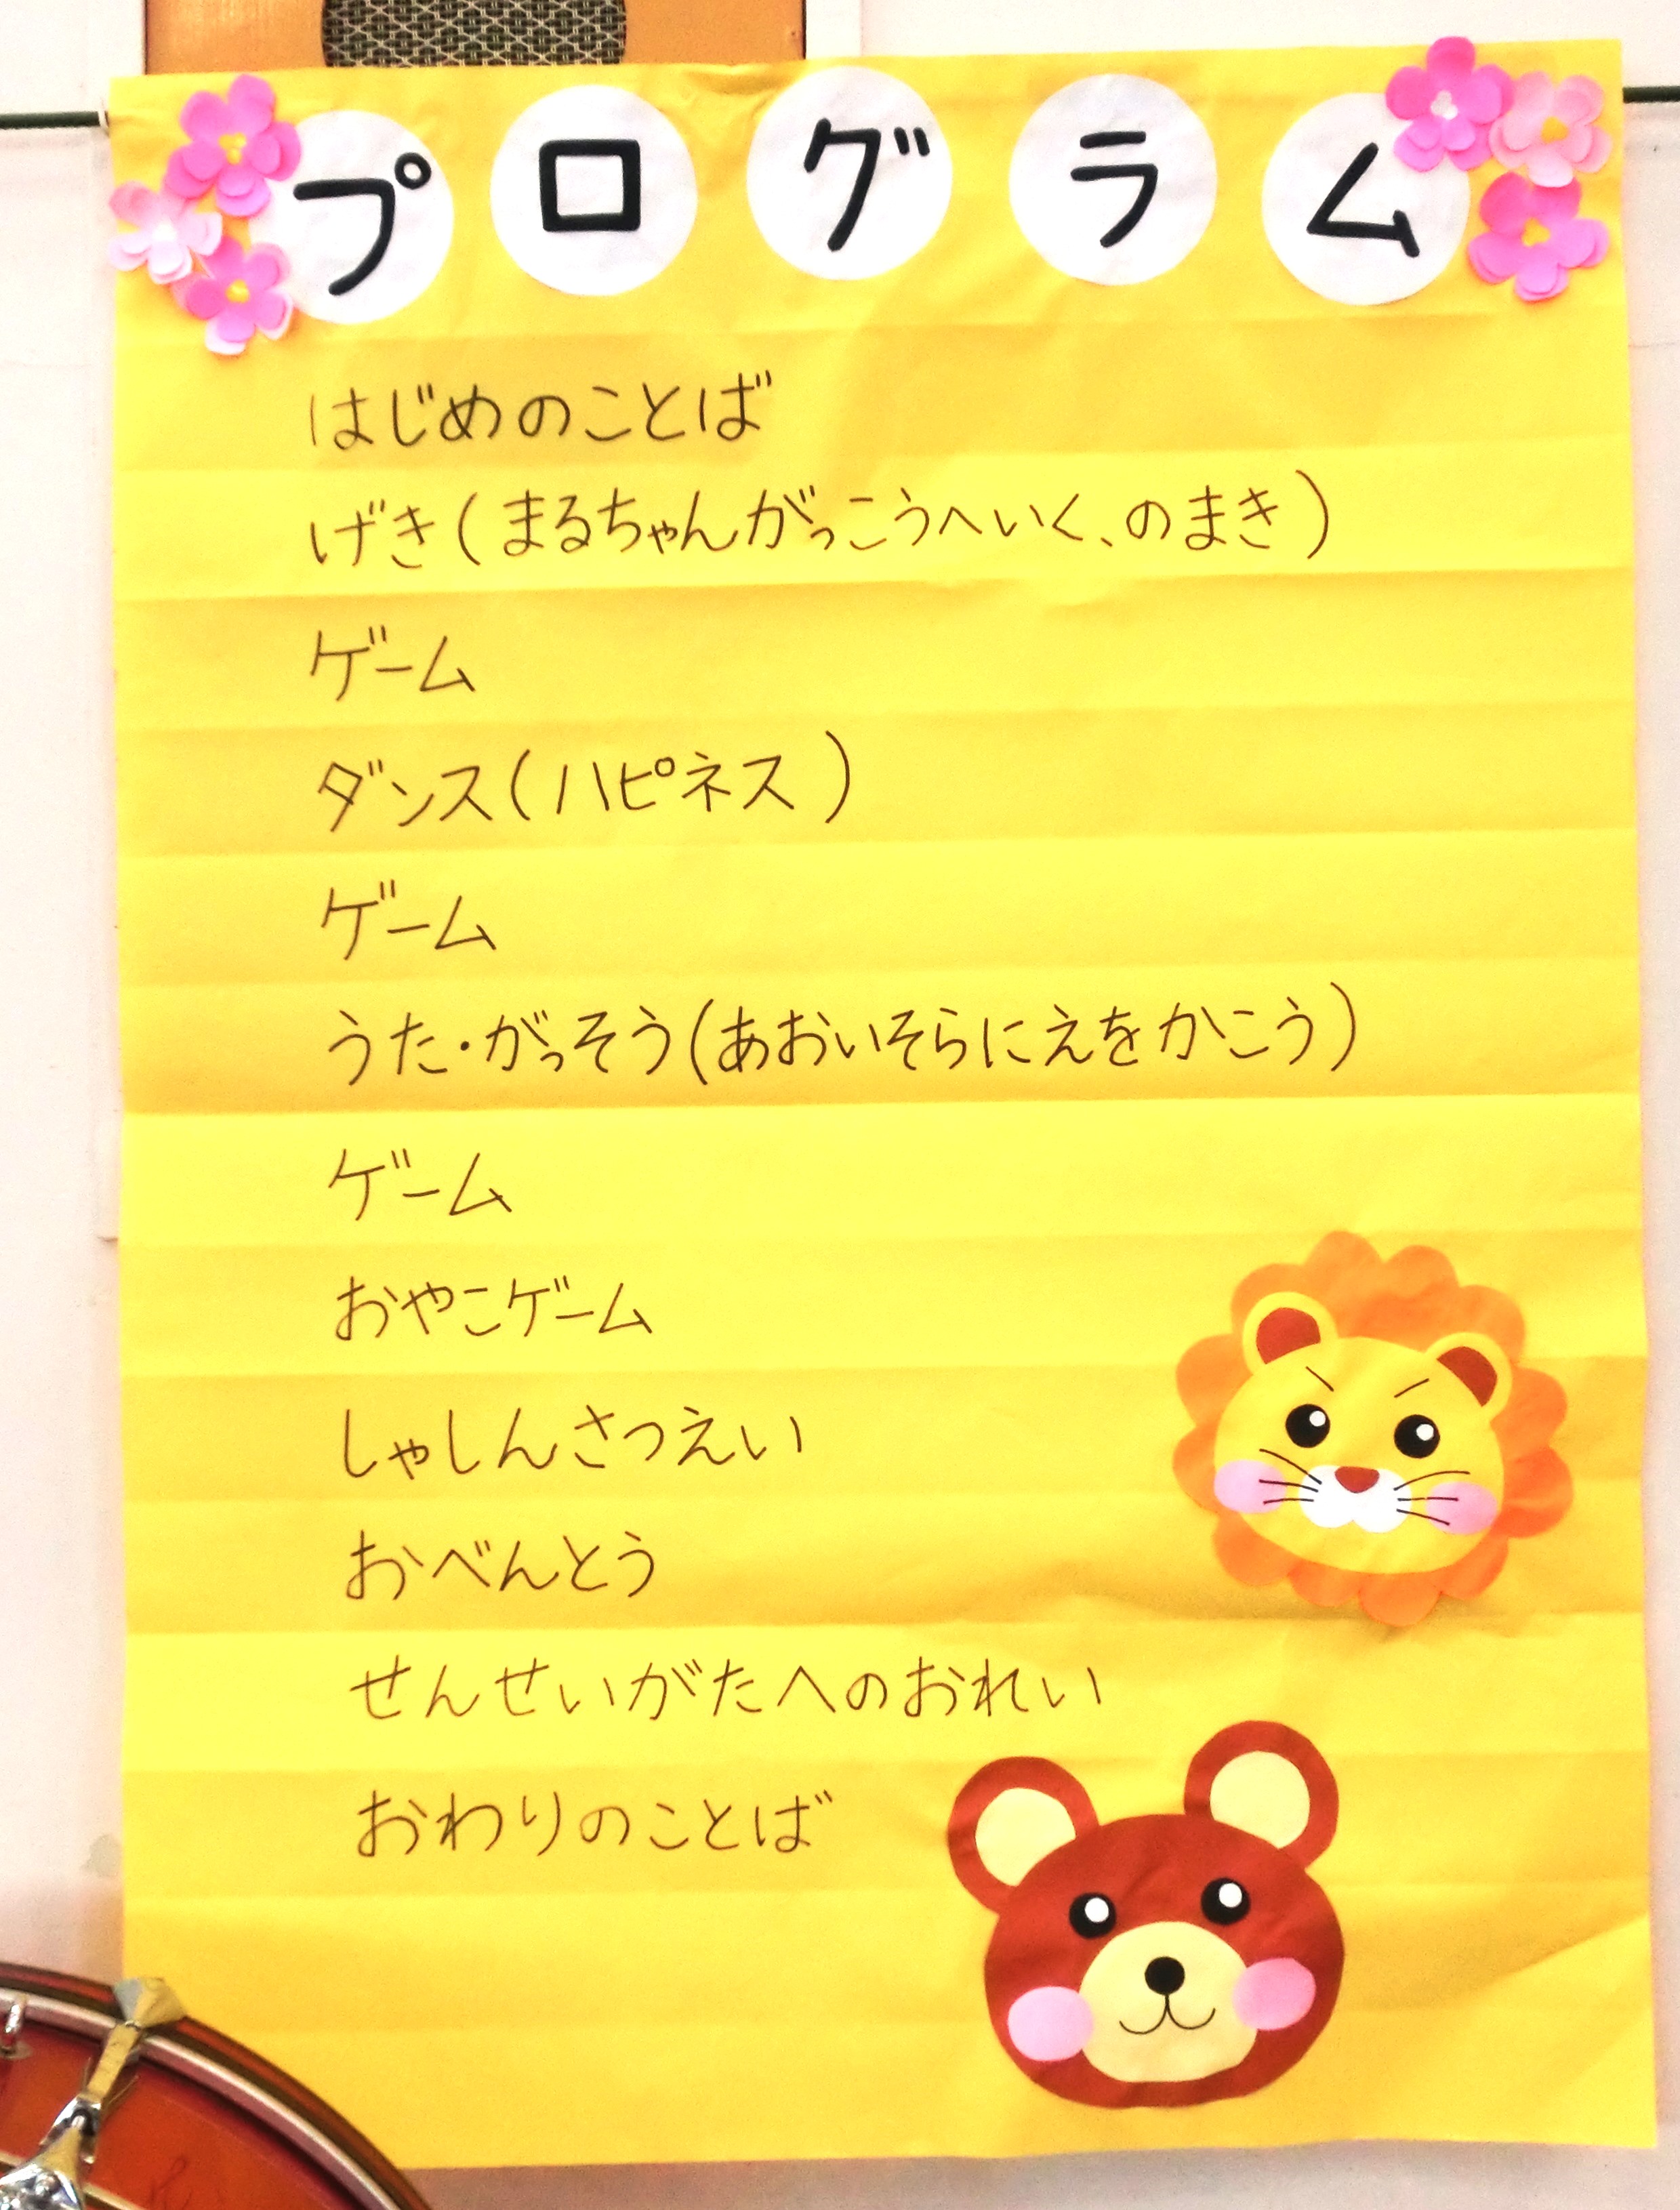 プログラム
はじめのことば
げき(まるちゃんがっこうへいく、のまき)
ゲーム
ダンス(ハピネス)
ゲーム
うた・がっそう(あおいそらにえをかこう)
ゲーム
おやこゲーム
しゃしんさつえい
おべんとう
せんせいがたへのおれい
おわりのことば